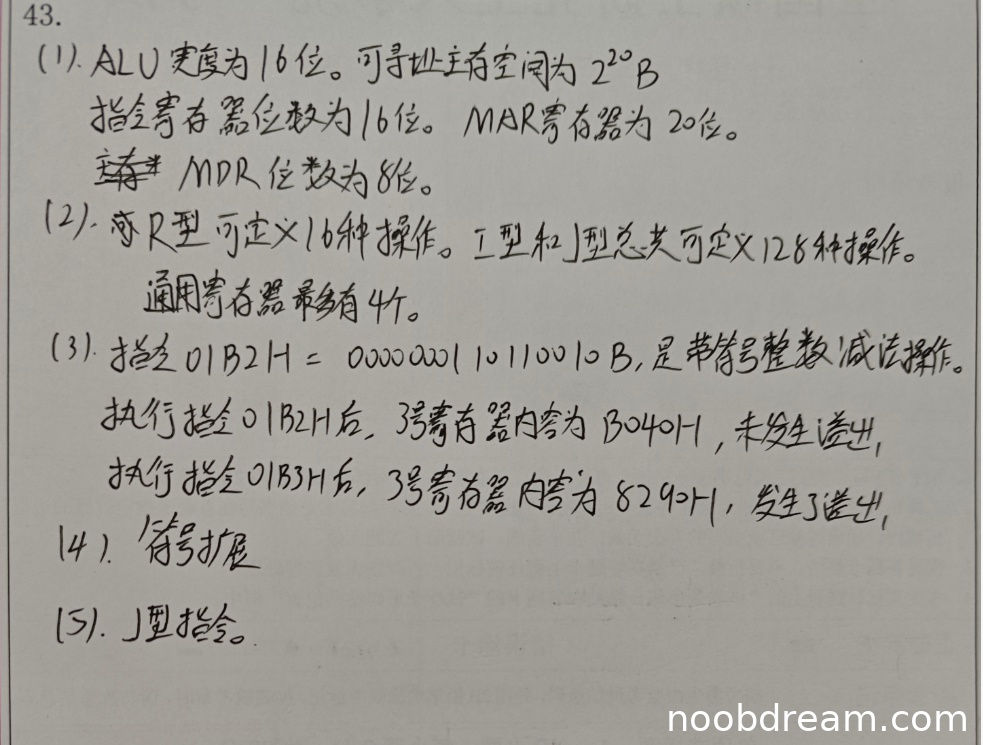 43.
(1). ALU宽度为16位。可寻址主存空间为2²⁰B
指令寄存器位数为16位。MAR寄存器为20位。
MDR位数为8位。
(2). R型可定义16种操作。I型和J型总共可定义128种操作。
通用寄存器最多有4个。
(3). 指令01B2H = 0000000110110010B, 是带符号整数减法操作。
执行指令01B2H后, 3号寄存器内容为B040H, 未发生溢出,
执行指令01B3H后, 3号寄存器内容为8290H, 发生了溢出,
(4). 符号扩展
(5). J型指令。
noobdream.com